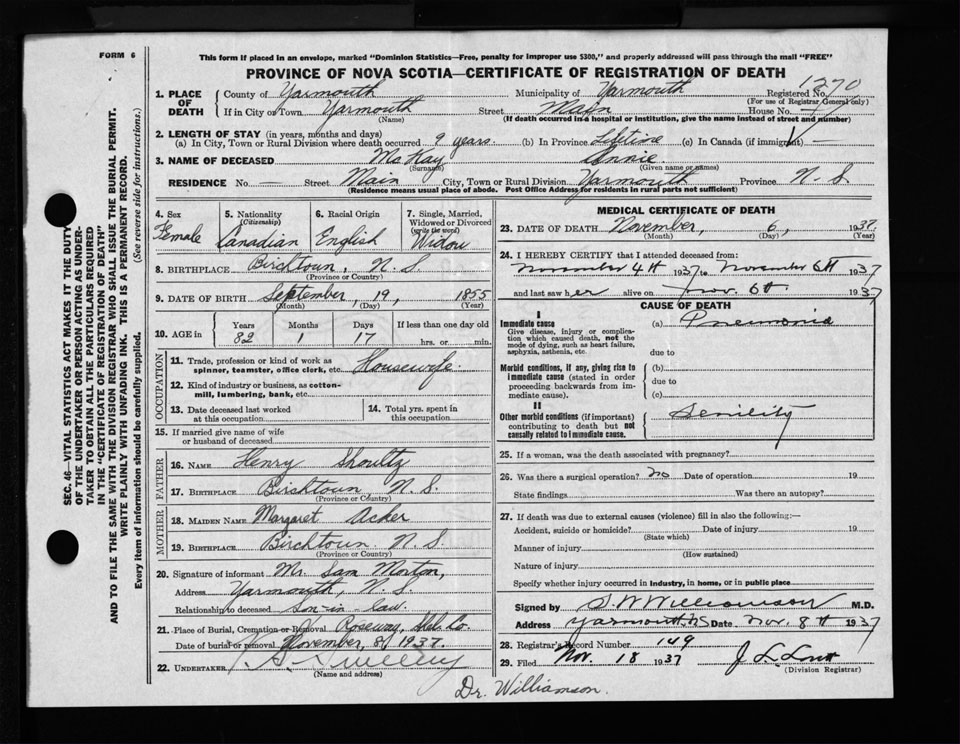 FORM 6
This form if placed in an envelope, marked "Dominion Statistics—Free, penalty for improper use $300," and properly addressed will pass through the mail "FREE"
PROVINCE OF NOVA SCOTIA—CERTIFICATE OF REGISTRATION OF DEATH
1. PLACE OF DEATH County of Yarmouth Municipality of Yarmouth Registered No. 1270
(For use of Registrar General only)
If in City or Town Yarmouth Street Main House No. —
(Name) (If death occurred in a hospital or institution, give the name instead of street and number)
2. LENGTH OF STAY (in years, months and days)
(a) In City, Town or Rural Division where death occurred 9 years. (b) In Province Lifetime (c) In Canada (if immigrant) —
3. NAME OF DECEASED McKay Annie
(Surname) (Given name or names)
RESIDENCE No. — Street Main City, Town or Rural Division Yarmouth Province N. S.
(Residence means usual place of abode. Post Office Address for residents in rural parts not sufficient)
SEC. 46—VITAL STATISTICS ACT MAKES IT THE DUTY
OF THE UNDERTAKER OR PERSON ACTING AS UNDER-
TAKER TO OBTAIN ALL THE PARTICULARS REQUIRED
IN THE "CERTIFICATE OF REGISTRATION OF DEATH"
AND TO FILE THE SAME WITH THE DIVISION REGISTRAR WHO SHALL ISSUE THE BURIAL PERMIT.
WRITE PLAINLY WITH UNFADING INK. THIS IS A PERMANENT RECORD.
Every item of information should be carefully supplied. (See reverse side for instructions.)
4. Sex 5. Nationality (Citizenship) 6. Racial Origin 7. Single, Married, Widowed or Divorced (write the word)
Female Canadian English Widow
8. BIRTHPLACE Birchtown, N. S.
(Province or Country)
9. DATE OF BIRTH September, 19, 1855
(Month) (Day) (Year)
10. AGE in Years Months Days If less than one day old
82 1 17 hrs. or min.
OCCUPATION
11. Trade, profession or kind of work as
spinner, teamster, office clerk, etc. Housewife.
12. Kind of industry or business, as cotton-
mill, lumbering, bank, etc.
13. Date deceased last worked
at this occupation
14. Total yrs. spent in
this occupation
15. If married give name of wife
or husband of deceased
FATHER
16. NAME Henry Shoultz
17. BIRTHPLACE Birchtown N. S.
(Province or Country)
MOTHER
18. MAIDEN NAME Margaret Acker
19. BIRTHPLACE Birchtown N. S.
(Province or Country)
20. Signature of informant Mr. Sam Morton,
Address Yarmouth, N. S.
Relationship to deceased son-in-law.
21. Place of Burial, Cremation or Removal Roseway, Shel. Co.
Date of burial or removal November, 8, 1937.
22. UNDERTAKER Sweeny
(Name and address)
MEDICAL CERTIFICATE OF DEATH
23. DATE OF DEATH November, 6, 1937.
(Month) (Day) (Year)
24. I HEREBY CERTIFY that I attended deceased from:
November 4th 1937 to November 6th 1937
and last saw her alive on Nov. 6th. 1937
CAUSE OF DEATH
I
Immediate cause (a) Pneumonia
Give disease, injury or complica-
tion which caused death, not the
mode of dying, such as heart failure,
asphyxia, asthenia, etc. due to
Morbid conditions, if any, giving rise to (b)
immediate cause (stated in order due to
proceeding backwards from im-
mediate cause). (c)
II
Other morbid conditions (if important) Senility
contributing to death but not
causally related to immediate cause.
25. If a woman, was the death associated with pregnancy?
26. Was there a surgical operation? No Date of operation 19
State findings Was there an autopsy?
27. If death was due to external causes (violence) fill in also the following:—
Accident, suicide or homicide? Date of injury 19
(State which)
Manner of injury
(How sustained)
Nature of injury
Specify whether injury occurred in industry, in home, or in public place
Signed by S. W. Williamson M.D.
Address Yarmouth, N.S. Date Nov. 8th 1937
28. Registrar's Record Number 149
29. Filed Nov. 18 1937
(Division Registrar)
Dr. Williamson.